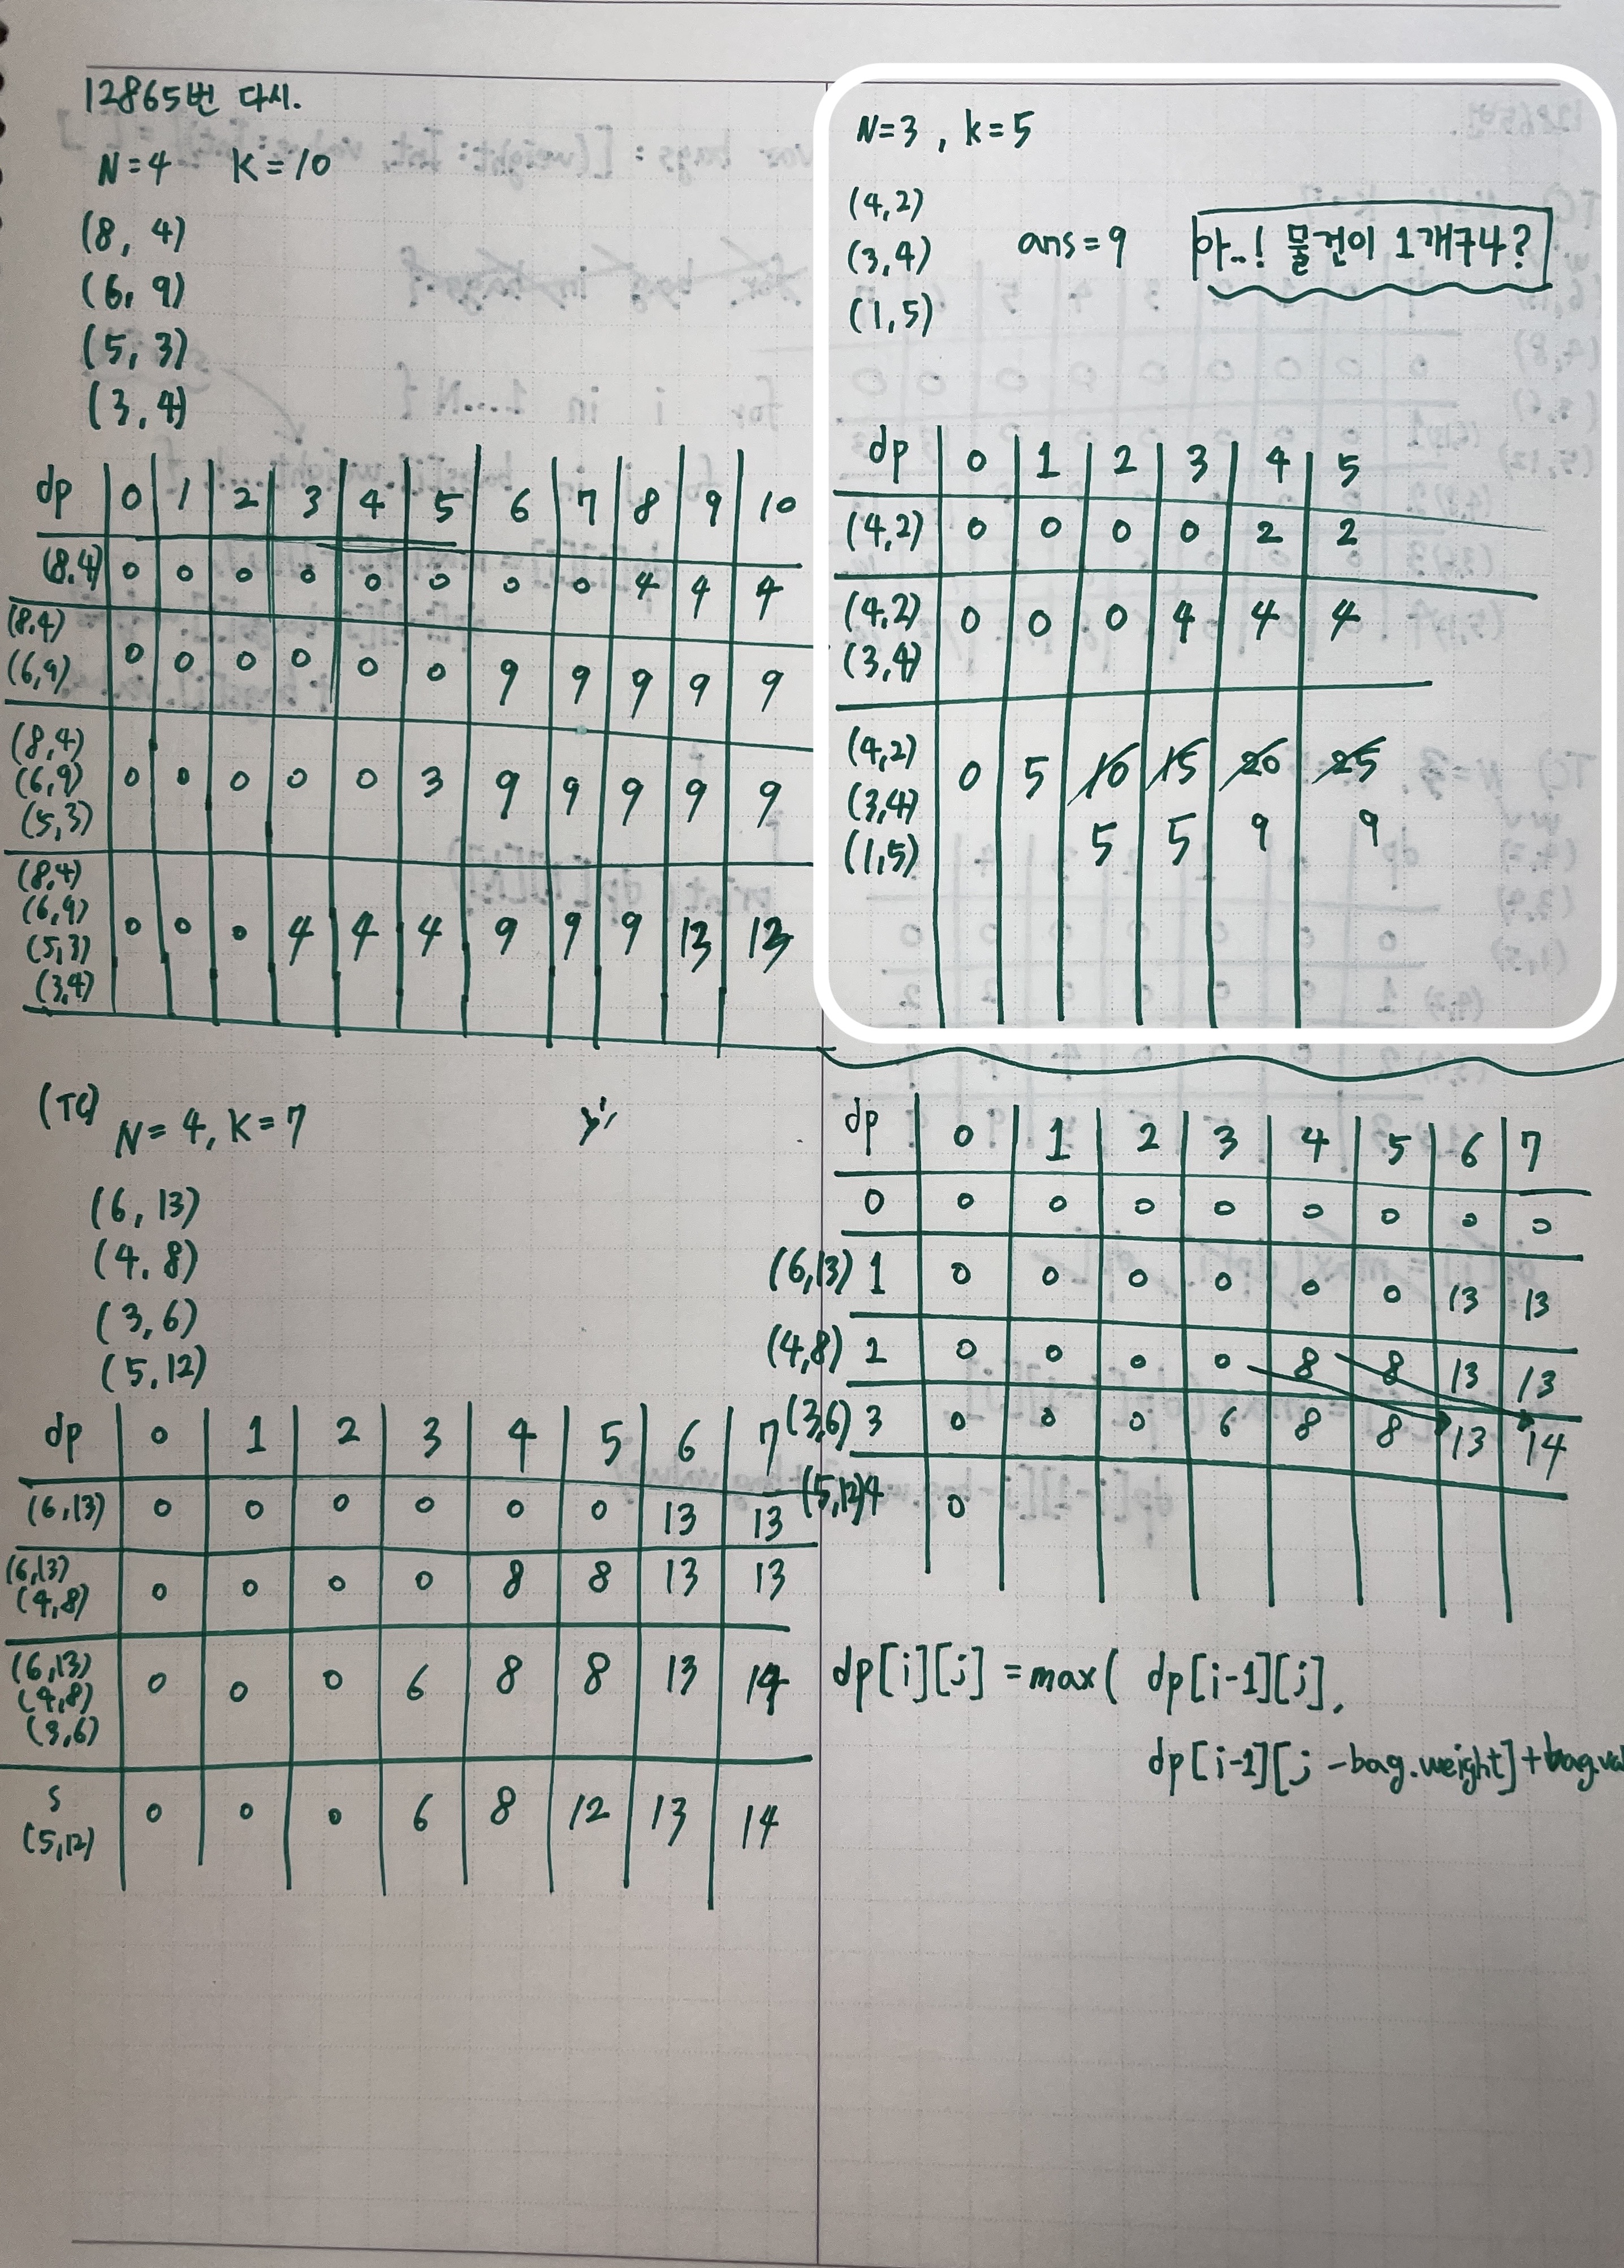 12865번 다시.
N=4 K=10
(8, 4)
(6, 9)
(5, 3)
(3, 4)
dp 0 1 2 3 4 5 6 7 8 9 10
(8.4) 0 0 0 0 0 0 0 0 4 4 4
(8.4)
(6,9) 0 0 0 0 0 0 9 9 9 9 9
(8,4)
(6,9) 0 0 0 0 0 3 9 9 9 9 9
(5,3)
(8,4)
(6,9) 0 0 0 4 4 4 9 9 9 13 13
(5,3)
(3,4)
(TC) N=4, K=7
(6, 13)
(4, 8)
(3, 6)
(5, 12)
dp 0 1 2 3 4 5 6 7
(6,13) 0 0 0 0 0 0 13 13
(6,13)
(4,8) 0 0 0 0 8 8 13 13
(6,13)
(4,8) 0 0 0 6 8 8 13 14
(3,6)
(5,12) 0 0 0 6 8 12 13 14
N=3, k=5
(4,2)
(3,4) ans=9 아..! 물건이 1개구나?
(1,5)
dp 0 1 2 3 4 5
(4,2) 0 0 0 0 2 2
(4,2) 0 0 0 4 4 4
(3,4)
(4,2) 0 5 10 15 20 25
(3,4)
(1,5) 5 5 9 9
dp 0 1 2 3 4 5 6 7
0 0 0 0 0 0 0 0 0
(6,13) 1 0 0 0 0 0 0 13 13
(4,8) 2 0 0 0 0 8 8 13 13
(3,6) 3 0 0 0 6 8 8 13 14
(5,12) 4 0
dp[i][j] = max( dp[i-1][j],
dp[i-1][j -bag.weight]+bag.va